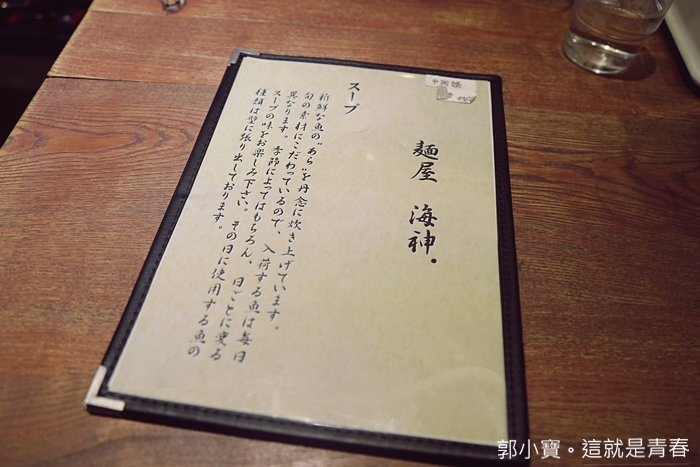 中国語
麺屋 海神。
スープ
新鮮な魚の"あら"を丹念に炊き上げています。
旬の素材にこだわっているので、入荷する魚は毎日
異なります。季節によってはもちろん、日ごとに変る
スープの味をお楽しみ下さい。その日に使用する魚の
種類は壁に張り出しております。
郭小寶。這就是青春